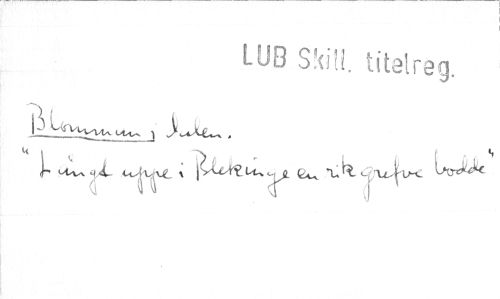 LUB Skill. titelreg.
Blomman i dalen.
"Långt uppe i Blekinge en rik grefve bodde"